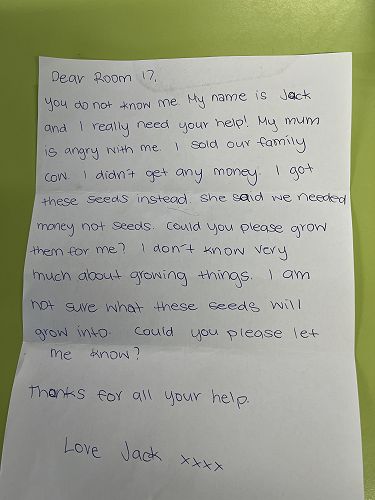 Dear Room 17,
you do not know me My name is Jack
and I really need your help! My mum
is angry with me. I sold our family
cow. I didn't get any money. I got
these seeds instead. she said we needed
money not seeds. could you please grow
them for me? I don't know very
much about growing things. I am
not sure what these seeds will
grow into. Could you please let
me know?
Thanks for all your help.
Love Jack xxxx